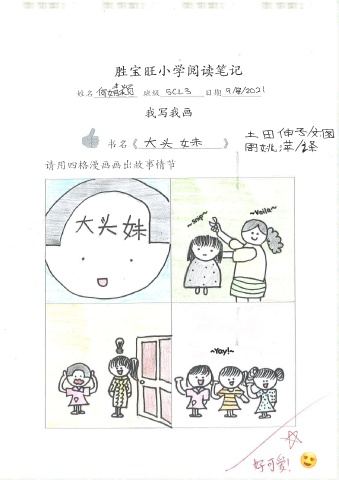 胜宝旺小学阅读笔记
姓名 何婧颖 班级 5CL3 日期 9/8/2021
我写我画
书名《 大头妹 》
土田伸子/文图
周姚萍/译
请用四格漫画画出故事情节
大头妹
~Snip~
~Voila~
~Yay!~
好可爱!